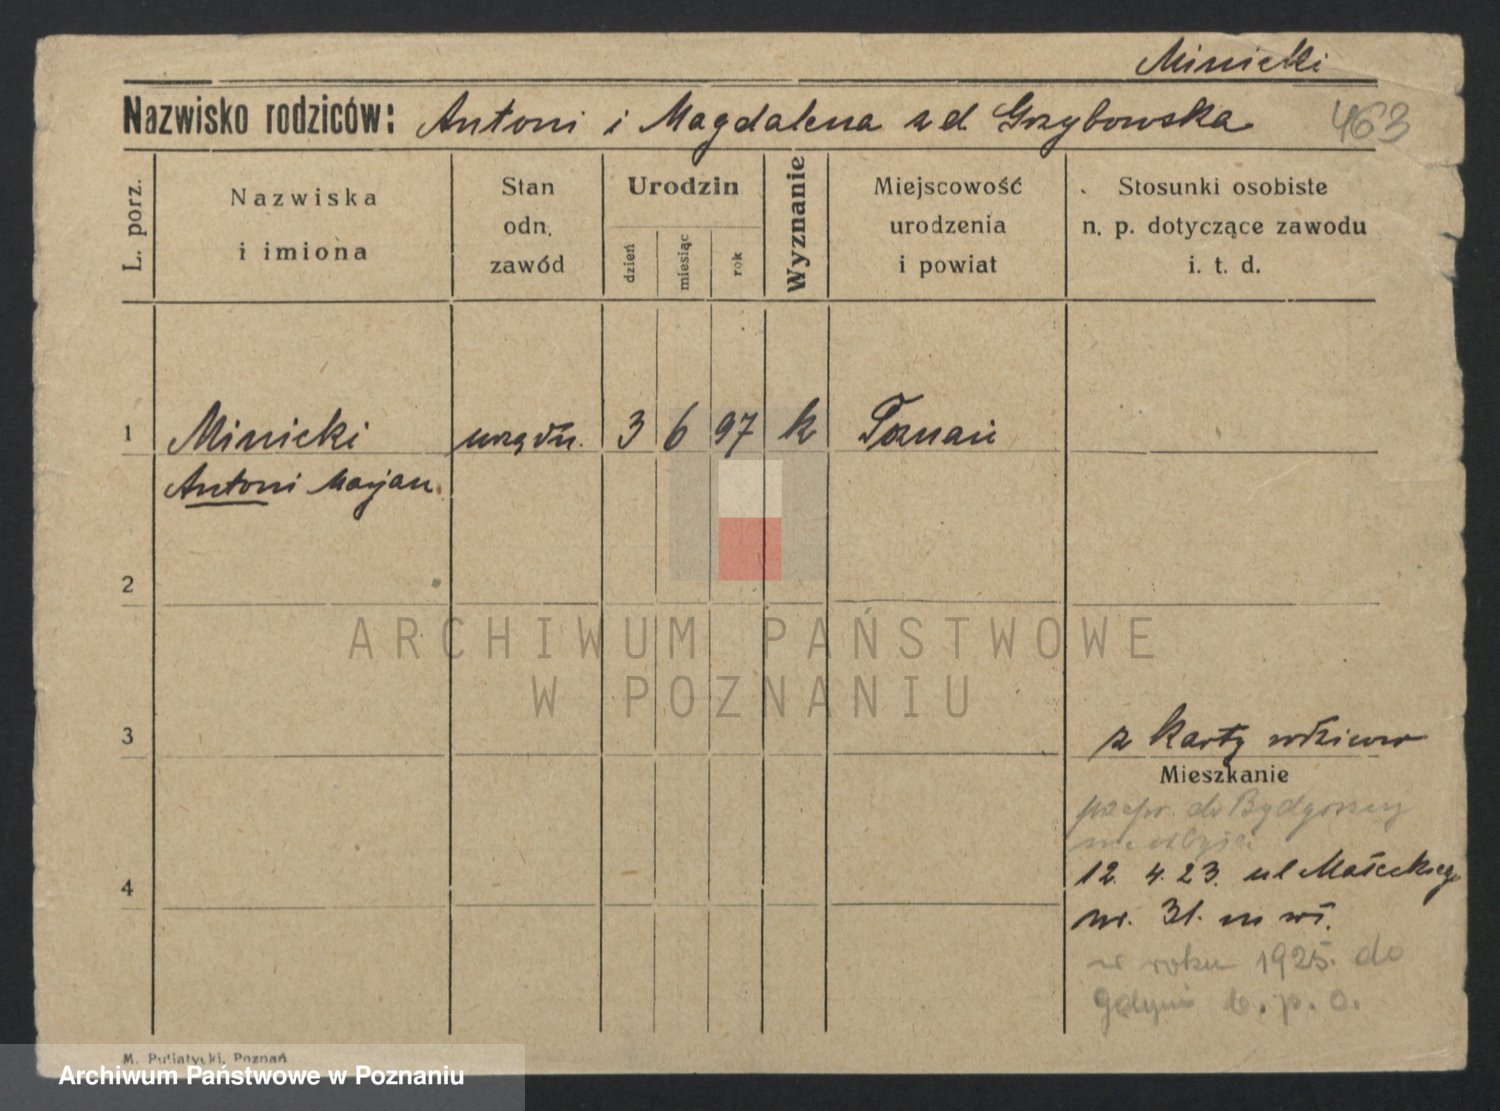 Minicki
Nazwisko rodziców: Antoni i Magdalena zd Grzybowska 463
L. porz.
Nazwiska
i imiona
Stan
odn.
zawód
Urodzin
dzień
miesiąc
rok
Wyznanie
Miejscowość
urodzenia
i powiat
Stosunki osobiste
n. p. dotyczące zawodu
i. t. d.
1 Minicki urzędn. 3 6 97 k Poznań
Antoni Marjan
2
ARCHIWUM PAŃSTWOWE
W POZNANIU
3 z karty rodziców
Mieszkanie
przepr. do Bydgoszczy
4 12. 4. 23. ul Małeckiego
nr. 31. m wł.
w roku 1925. do
Gdyni b. p. o.
M. Putiatycki, Poznań
Archiwum Państwowe w Poznaniu